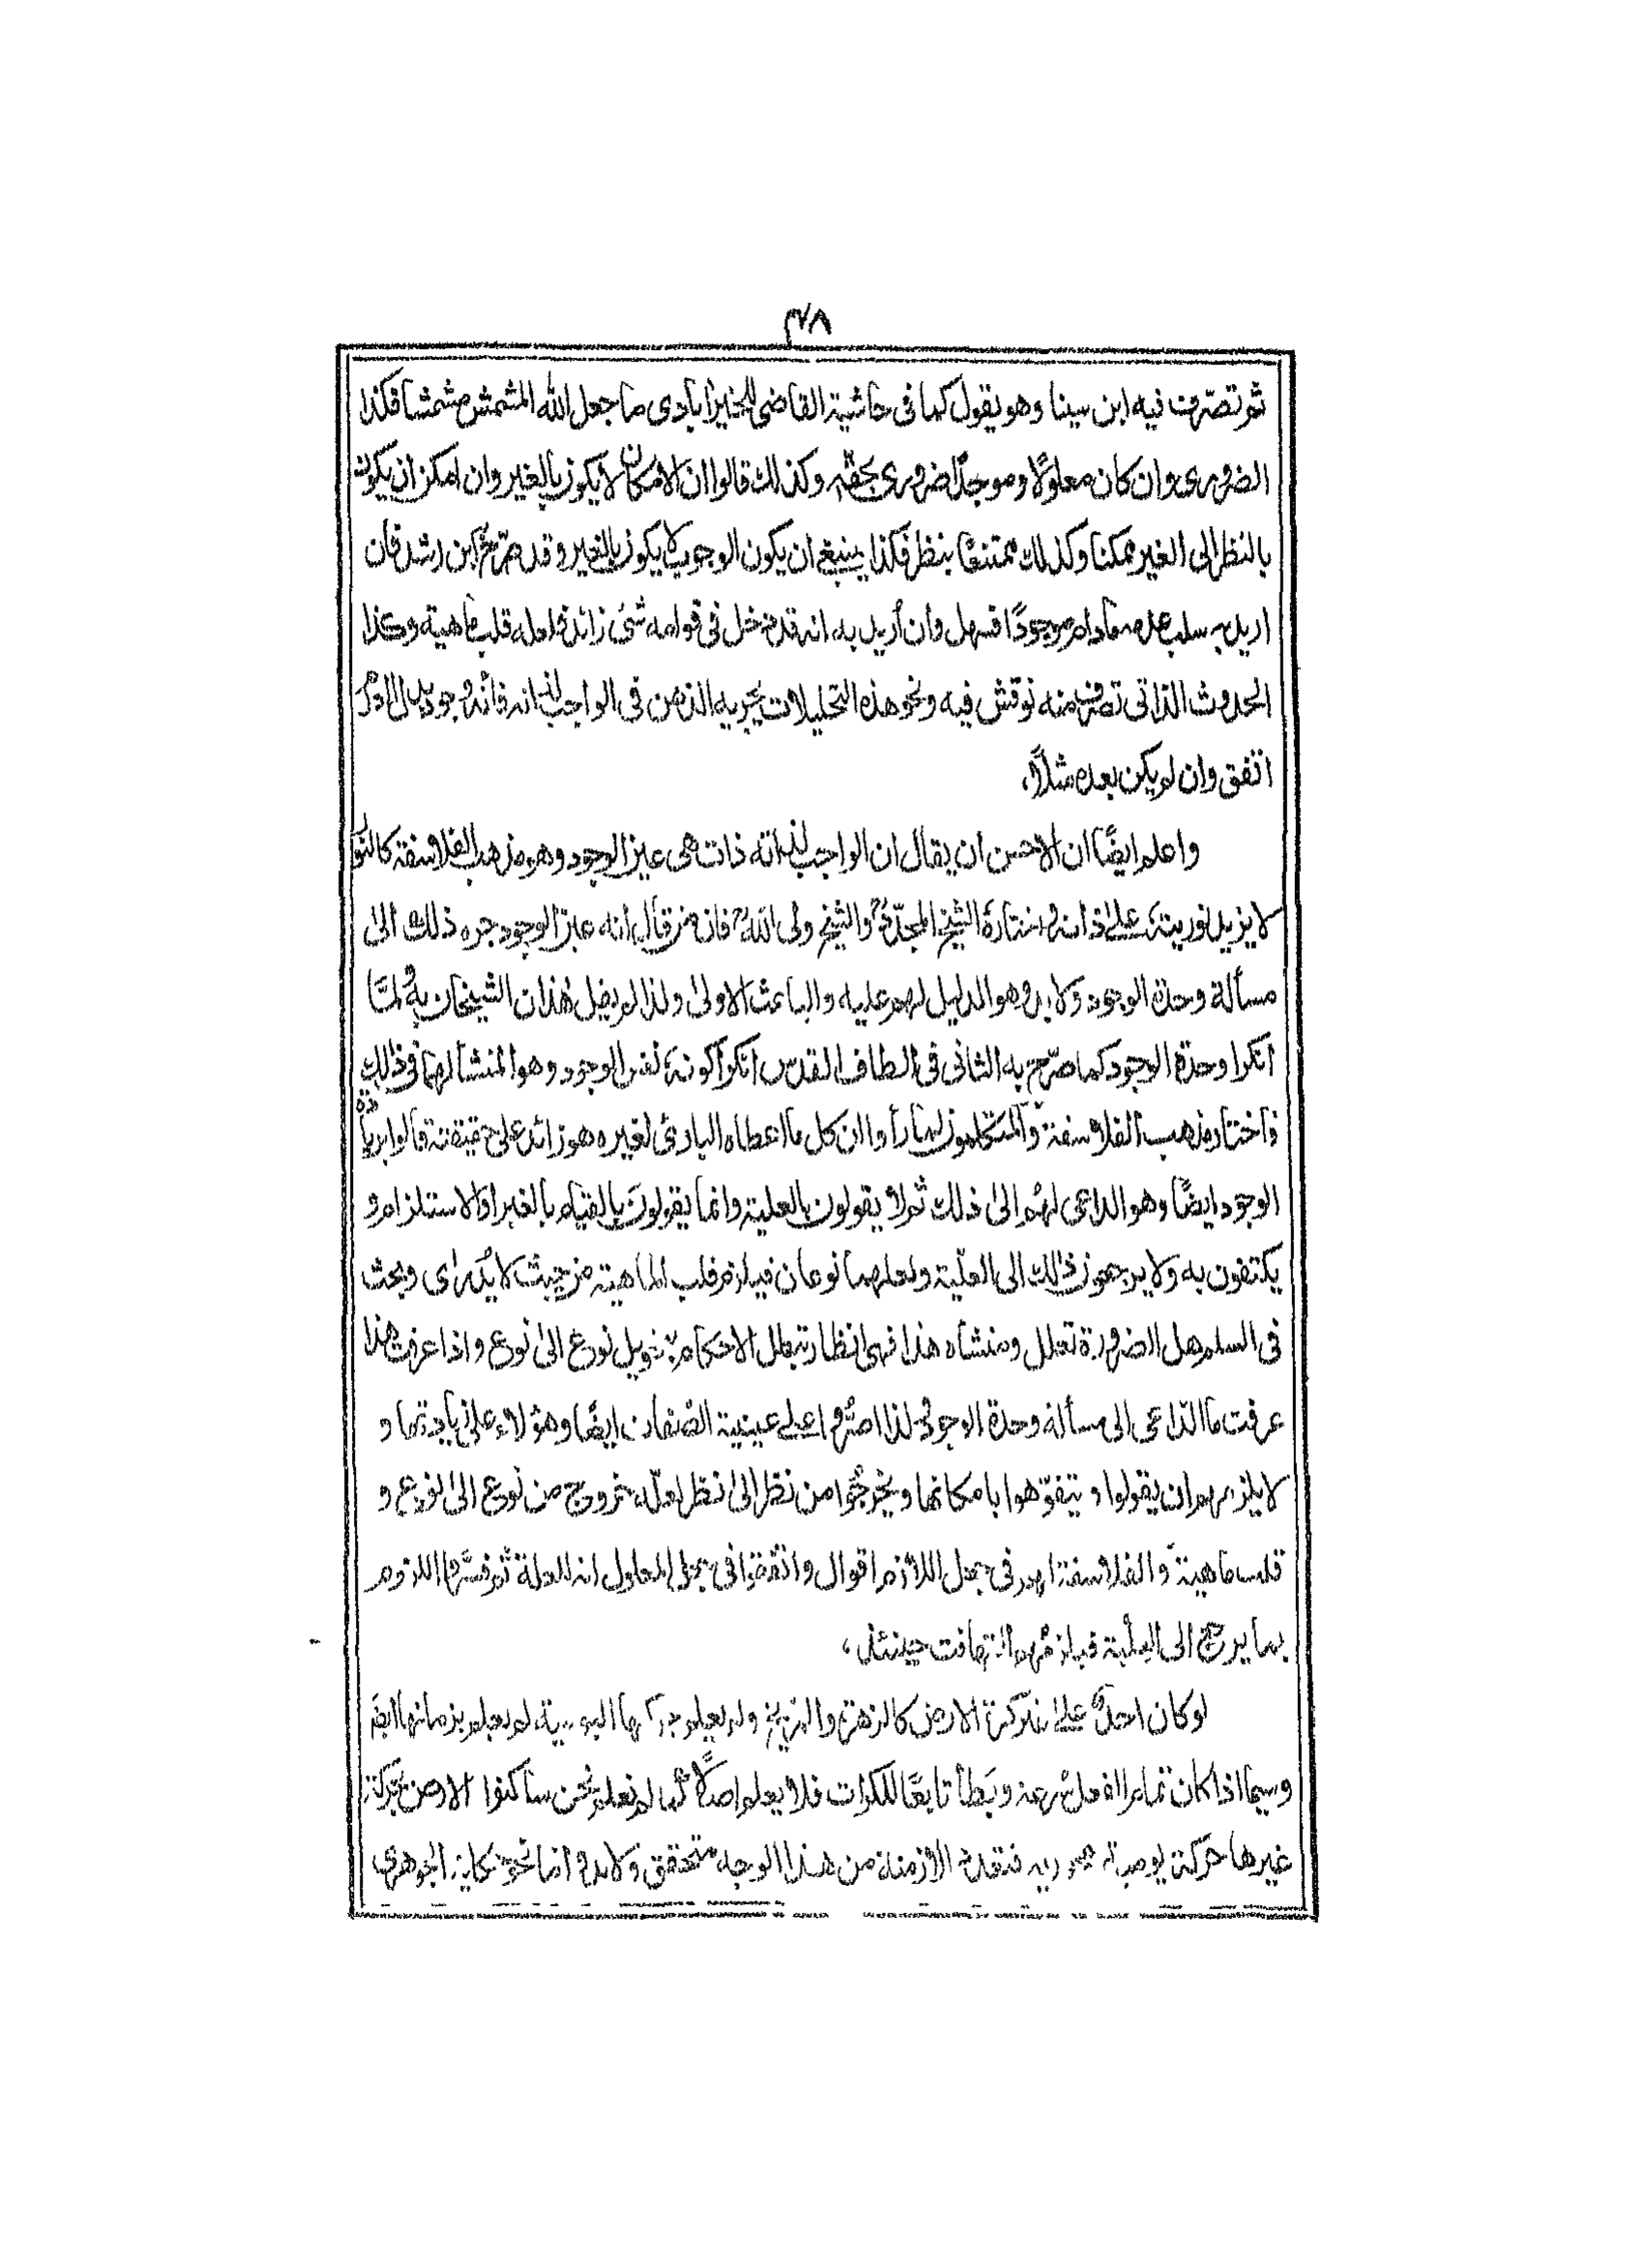 ٣٨
ثم تصرف فيه ابن سينا وهو يقول كما فى حاشية القاضى للخيرآبادى ما جعل الله المشمش مشمشا فكذا
الضرورى وان كان معلولًا وموجدًا ضرورى بحقه وكذلك قالوا ان الامكان لا يكون بالغير وان امكن ان يكون
بالنظر الى الغير ممكنا وكذلك ممتنعًا بنظر فكذا ينبغى ان يكون الوجوب لا يكون بالغير وقد صرّح به ابن رشد فان
اريد به سلب عدمه مادام موجودًا فسهل وان أريد به انه قد دخل فى قوامه شىء زائد فلعله قلب ماهية وكذا
الحدوث الذاتى تصرف منه نوقش فيه ونحو هذه التحليلات يجريه الذهن فى الواجب لذاته فانه وجود
اتفق وان لم يكن بعده مثلًا،
واعلم ايضًا ان الاحسن ان يقال ان الواجب لذاته ذات هى عين الوجود وهو مذهب الفلاسفة كالنور
لا يزيد نوريته على ذاته واختاره الشيخ المجدّد والشيخ ولى الله فان من قال انه عين الوجود جره ذلك الى
مسألة وحدة الوجود ولا بد وهو الدليل لهم عليه والباعث الاولى ولذا لم يضل هذان الشيخان به لمّا
انكرا وحدة الوجود كما صرّح به الثانى فى الطاف القدس انكرا كونه نفس الوجود وهو المنشأ لهما فى ذلك
فاختار مذهب الفلاسفة والمتكلمون لما رأوا ان كل ما اعطاه البارئ لغيره هو زائد على حقيقته قالوا بزيادة
الوجود ايضًا وهو الداعى لهم الى ذلك ثم لا يقولون بالعلية وانما يقولون بالقيام بالغير او الاستلزام و
يكتفون به ولا يرجعون ذلك الى العلّية ولعلهما نوعان فيلزم قلب الماهية من حيث لا يدرى وبحث
فى السلم هل الضرورة تعلل ومنشأه هذا فهى انظار تبطل الاحكام بتحويل نوع الى نوع واذا عرفت هذا
عرفت ما الداعى الى مسألة وحدة الوجود لذا اصرّوا على عينية الصفات ايضًا وهؤلاء على زيادتها و
لا يلزمهم ان يقولوا و يتفوّهوا بامكانها ويخرجوا من نظر الى نظر لعله خروج من نوع الى نوع و
قلب ماهية والفلاسفة لهم فى جعل اللازم اقوال واتفقوا فى جعل المعلول انه للعلة ثم فسّروا اللزوم
بما يرجع الى العلّية فيلزمهم التهافت حينئذ،
لو كان احد على غير كرة الارض كالزهرة والمريخ ولم يعلم اليومية، لم يعلم بزمانها ايضًا
وسيما اذا كان تابعًا للكرات فلا يعلم اصلًا كما لم نعلم نحن ساكنوا الارض بحركة
غيرها حركة يومية فتعدد الازمنة من هذا الوجه متحقق ولا بد الجوهرى